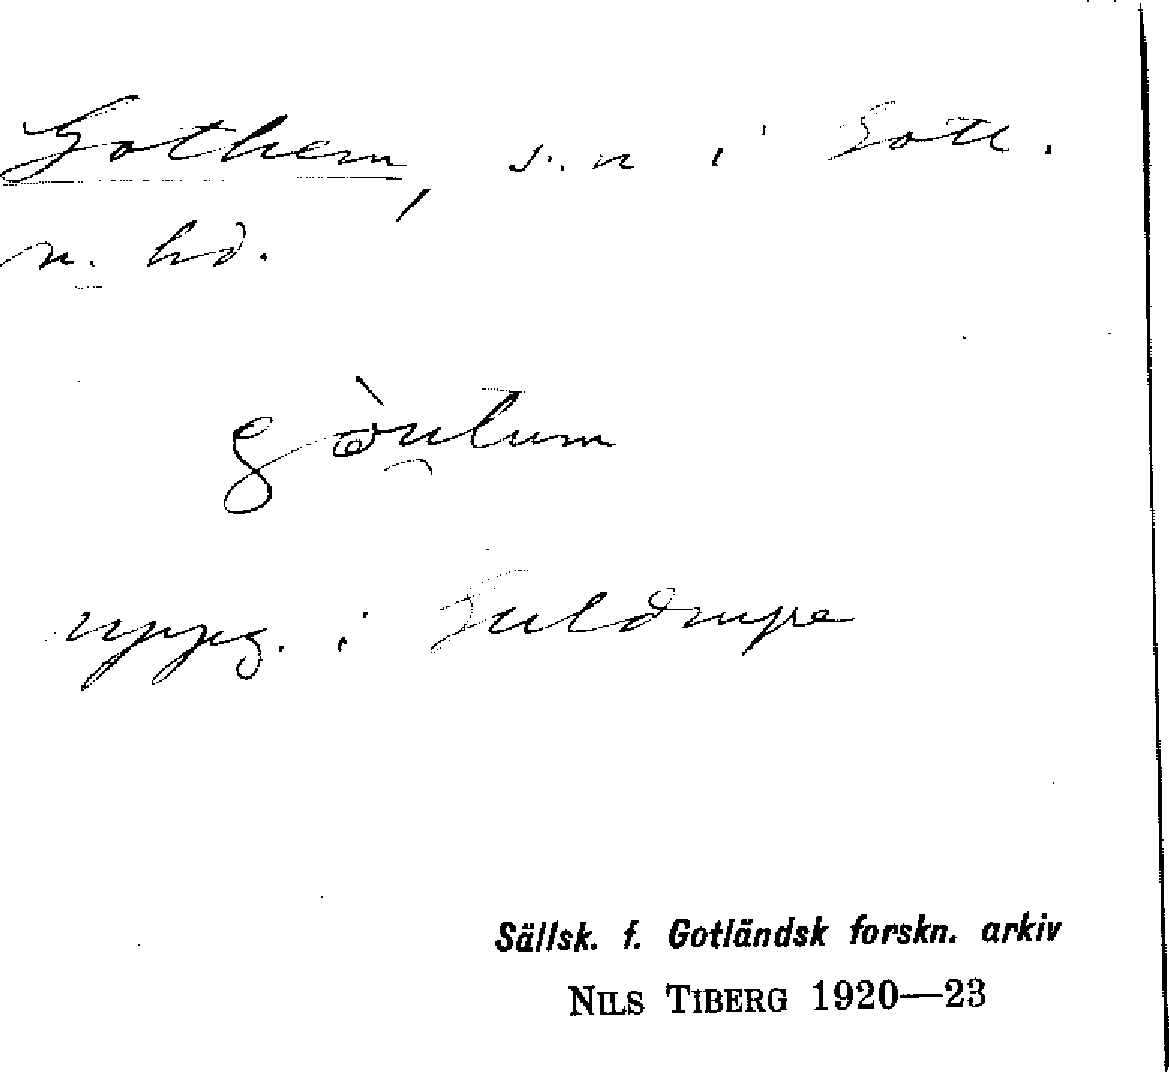 Gothem, s:n i Gotl.
n. hd.
uppg. i Guldrupe
Sällsk. f. Gotländsk forskn. arkiv
NILS TIBERG 1920—23